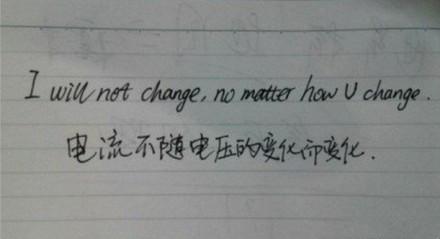 I will not change, no matter how U change.
电流不随电压的变化而变化.